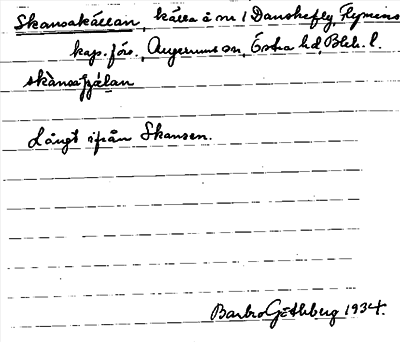 Skansakällan, källa å nr 1 Danskefly, Flymens
kap. förs., Augerums sn, Östra hd, Blek. l.
skànsaȷälan
Långt ifrån Skansen.
Barbro Göthberg 1934.